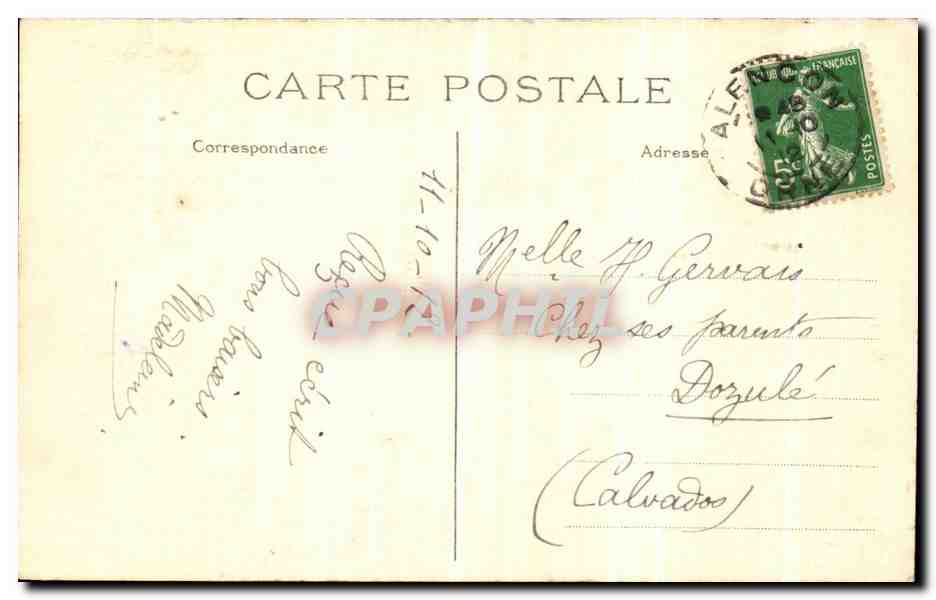 CARTE POSTALE
Correspondance
Adresse
11-10-12
Reçu écrit
bons baisers
Madeleine
Melle H. Gervais
Chez ses parents
Dozulé
(Calvados)
RÉPUBLIQUE FRANÇAISE
POSTES
5c
ALENÇON
ORNE
CPAPHIL